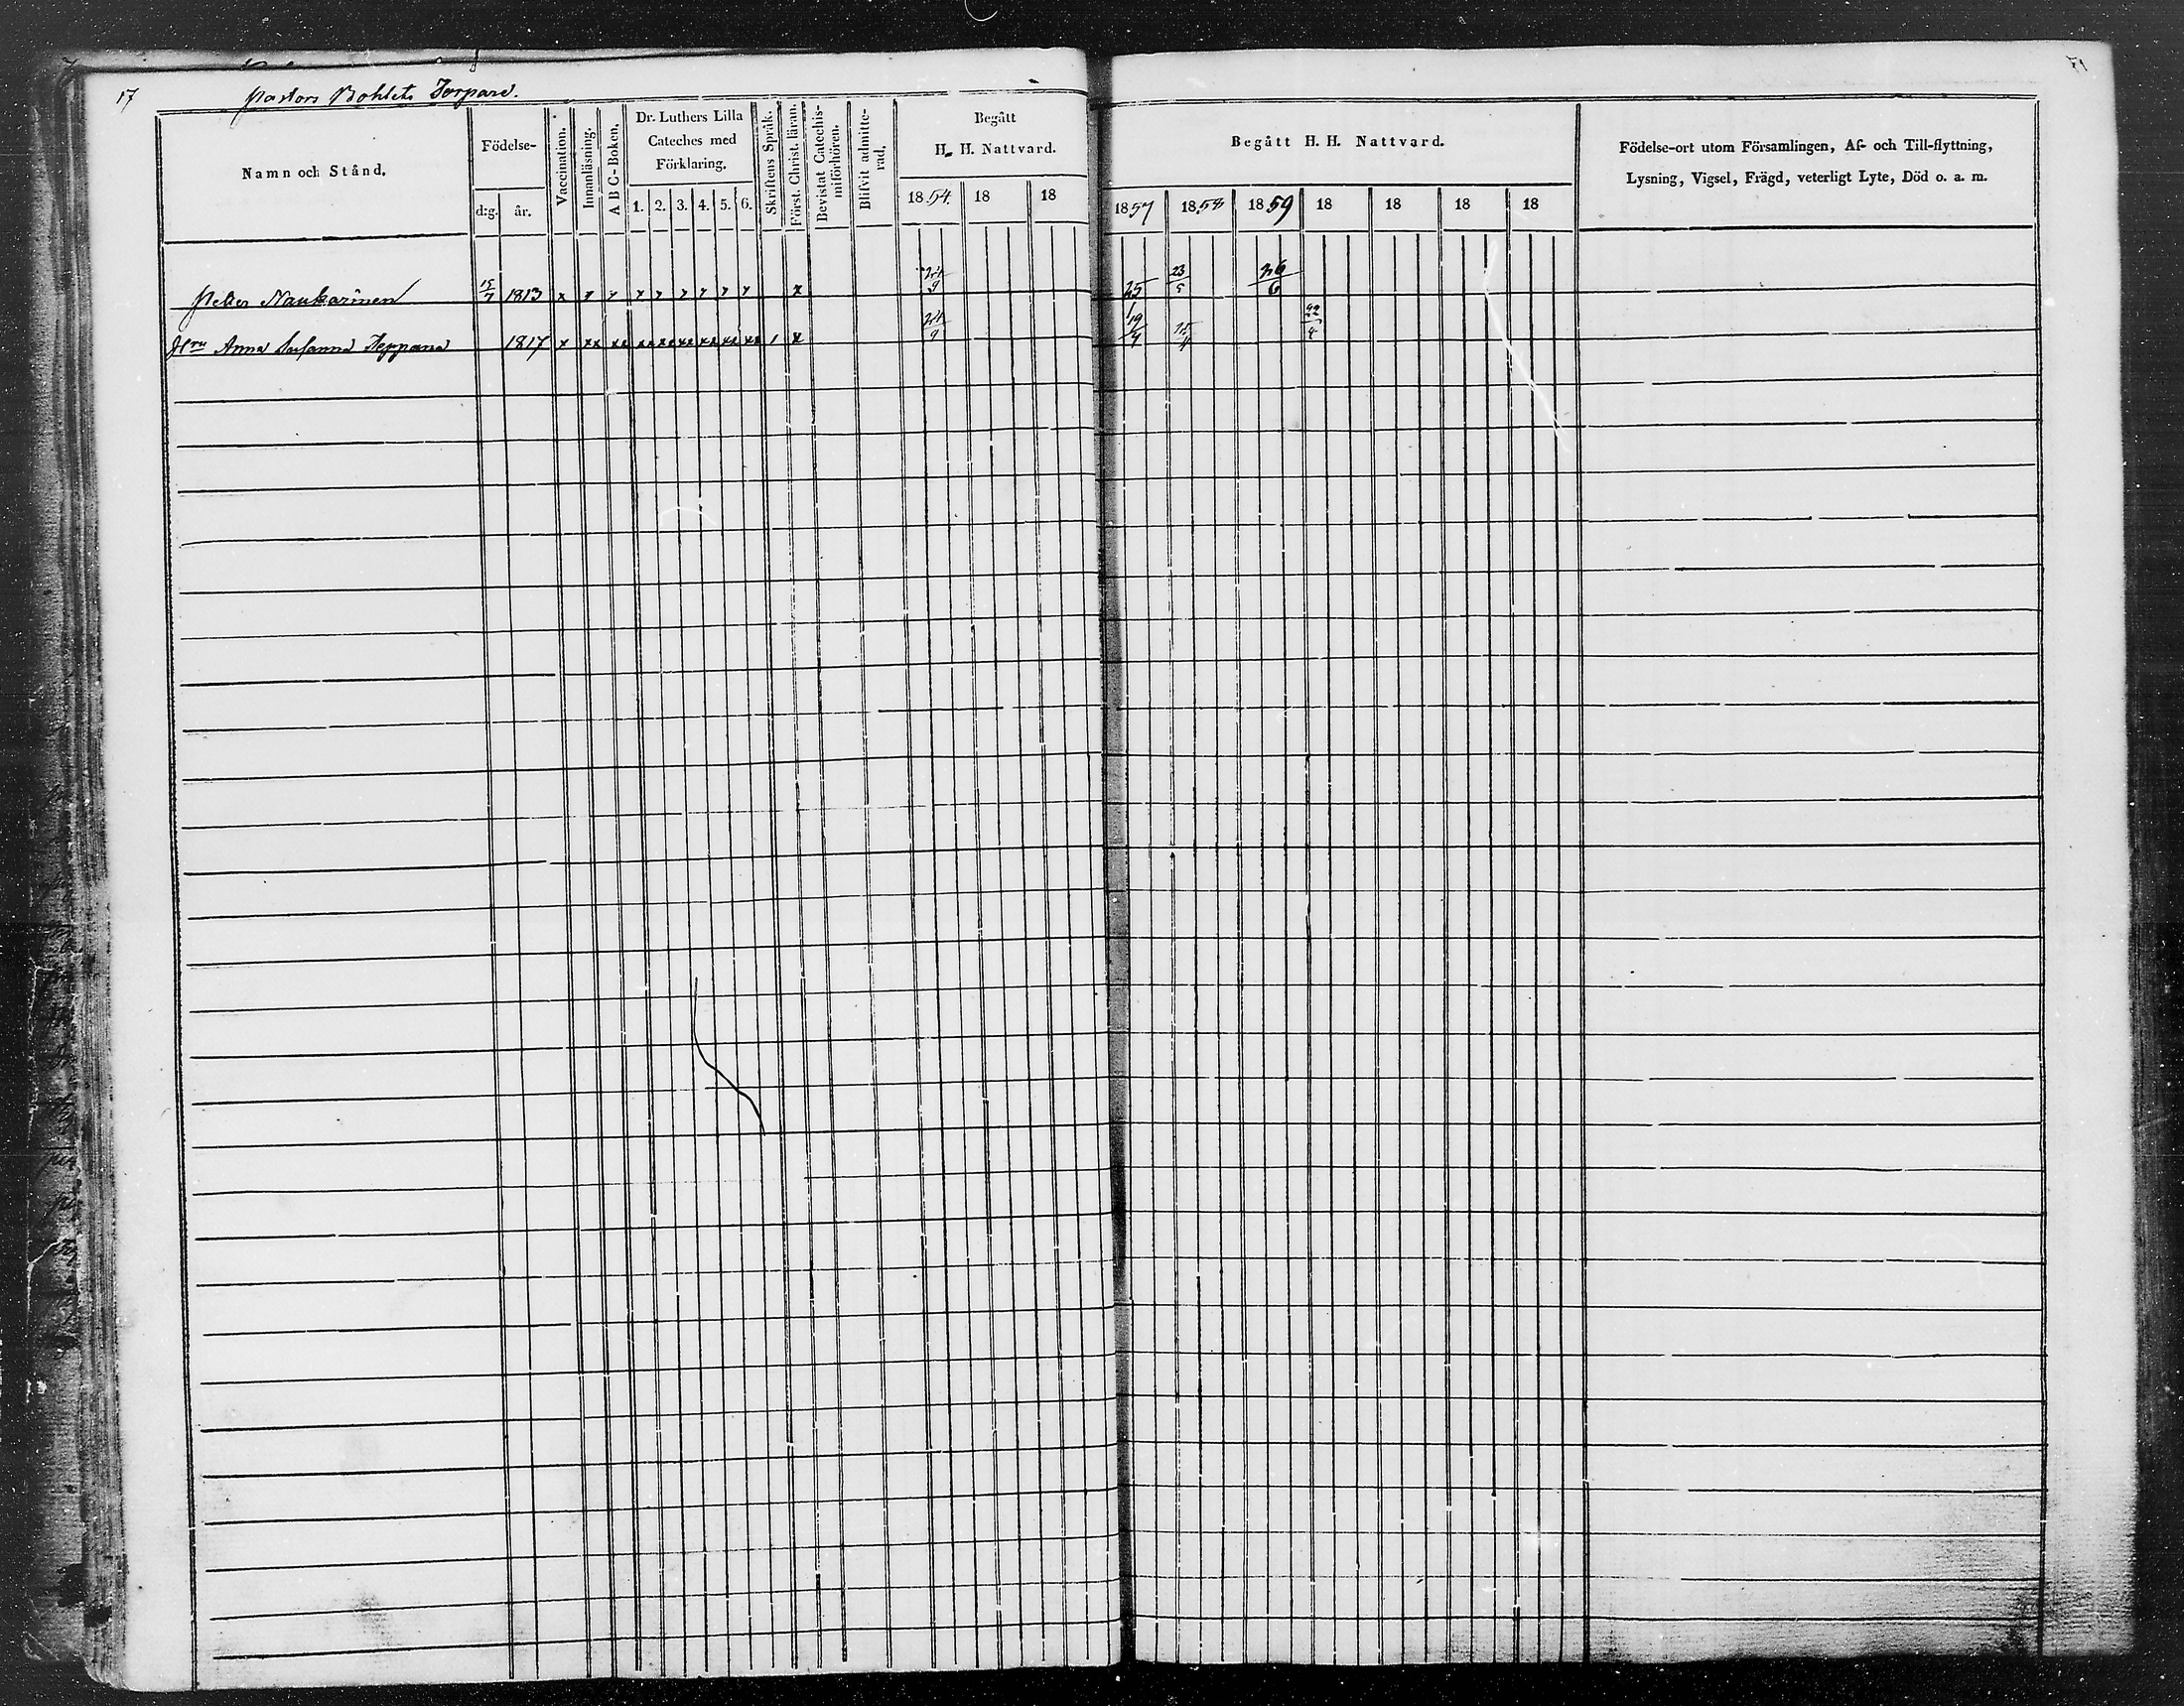 17
Pastors Bohlets Torpare.
Namn och Stånd.
Födelse-
d:g. år.
Vaccination.
Innanläsning.
A B C-Boken.
Dr. Luthers Lilla
Cateches med
Förklaring.
1. 2. 3. 4. 5. 6.
Skriftens Språk.
Först. Christ. läran.
Bevistat Catechis-
miförhören.
Blifvit admitte-
rad.
Begått
H. H. Nattvard.
1854. 18 18
Begått H. H. Nattvard.
1857 1858 1859 18 18 18 18
Födelse-ort utom Församlingen, Af- och Till-flyttning,
Lysning, Vigsel, Frägd, veterligt Lyte, Död o. a. m.
Petter Naukarinen 15/7 1813 x x 24/9 23/5 26/6
Hru Anna Susanna Reppana 1817 x xx xx xx xx xx xx xx xx 1 x 24/9 19/4 22/4